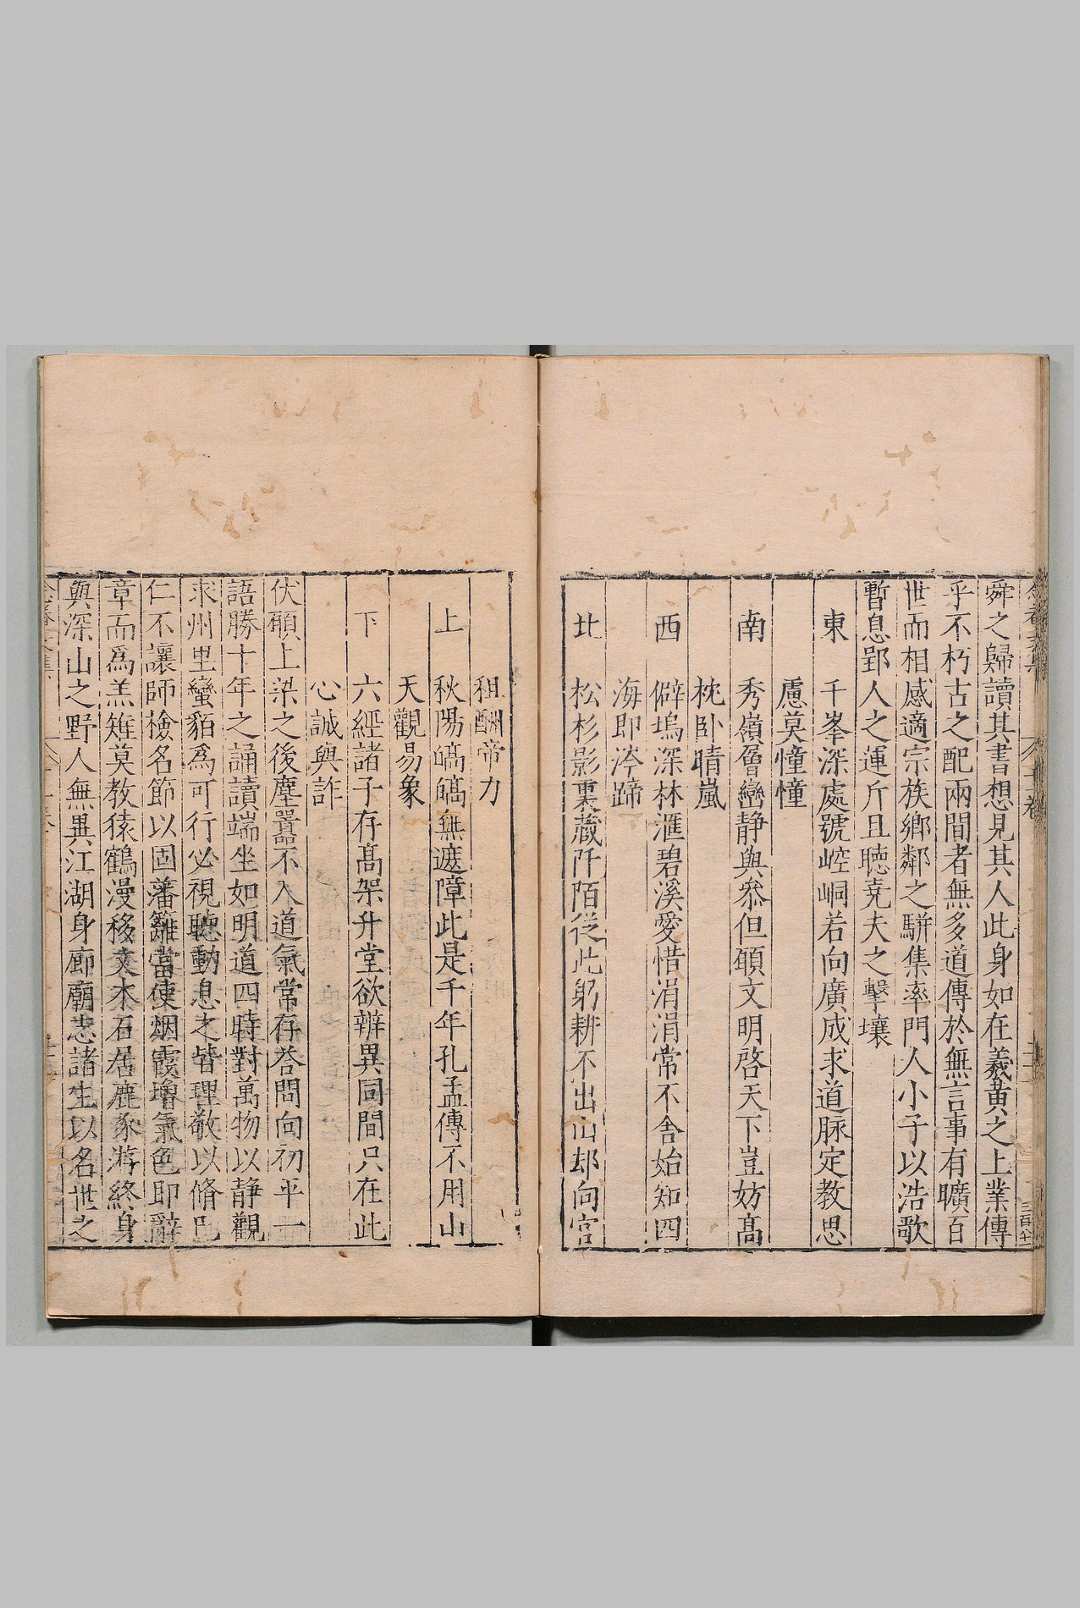 舜之歸讀其書想見其人此身如在羲黄之上業傳
乎不朽古之配兩間者無多道傳於無言事有曠百
世而相感適宗族鄉鄰之駢集率門人小子以浩歌
暫息郢人之運斤且聴堯夫之擊壤
東 千峯深處號崆峒若向廣成求道脉定教思
慮莫憧憧
南 秀嶺層巒静與叅但頋文明啓天下豈妨髙
枕卧晴嵐
西 僻塢深林滙碧溪愛惜涓涓常不舍始知四
海即涔蹄
北 松杉影裏蔵阡陌從此躬耕不出山却向官
租酬帝力
上 秋陽皜皜無遮障此是千年孔孟傳不用山
天觀易象
下 六經諸子存髙架升堂欲辨異同間只在此
心誠與詐
伏願上梁之後塵囂不入道氣常存荅問向初平一
語勝十年之誦讀端坐如明道四時對萬物以静觀
求州里蠻貊爲可行必視聴動息之皆理敬以脩己
仁不讓師撿名節以固藩籬當使烟霞增氣色即辭
章而爲羔雉莫教猿鶴漫移文木石居鹿豕游終身
與深山之野人無異江湖身廊廟志諸生以名世之